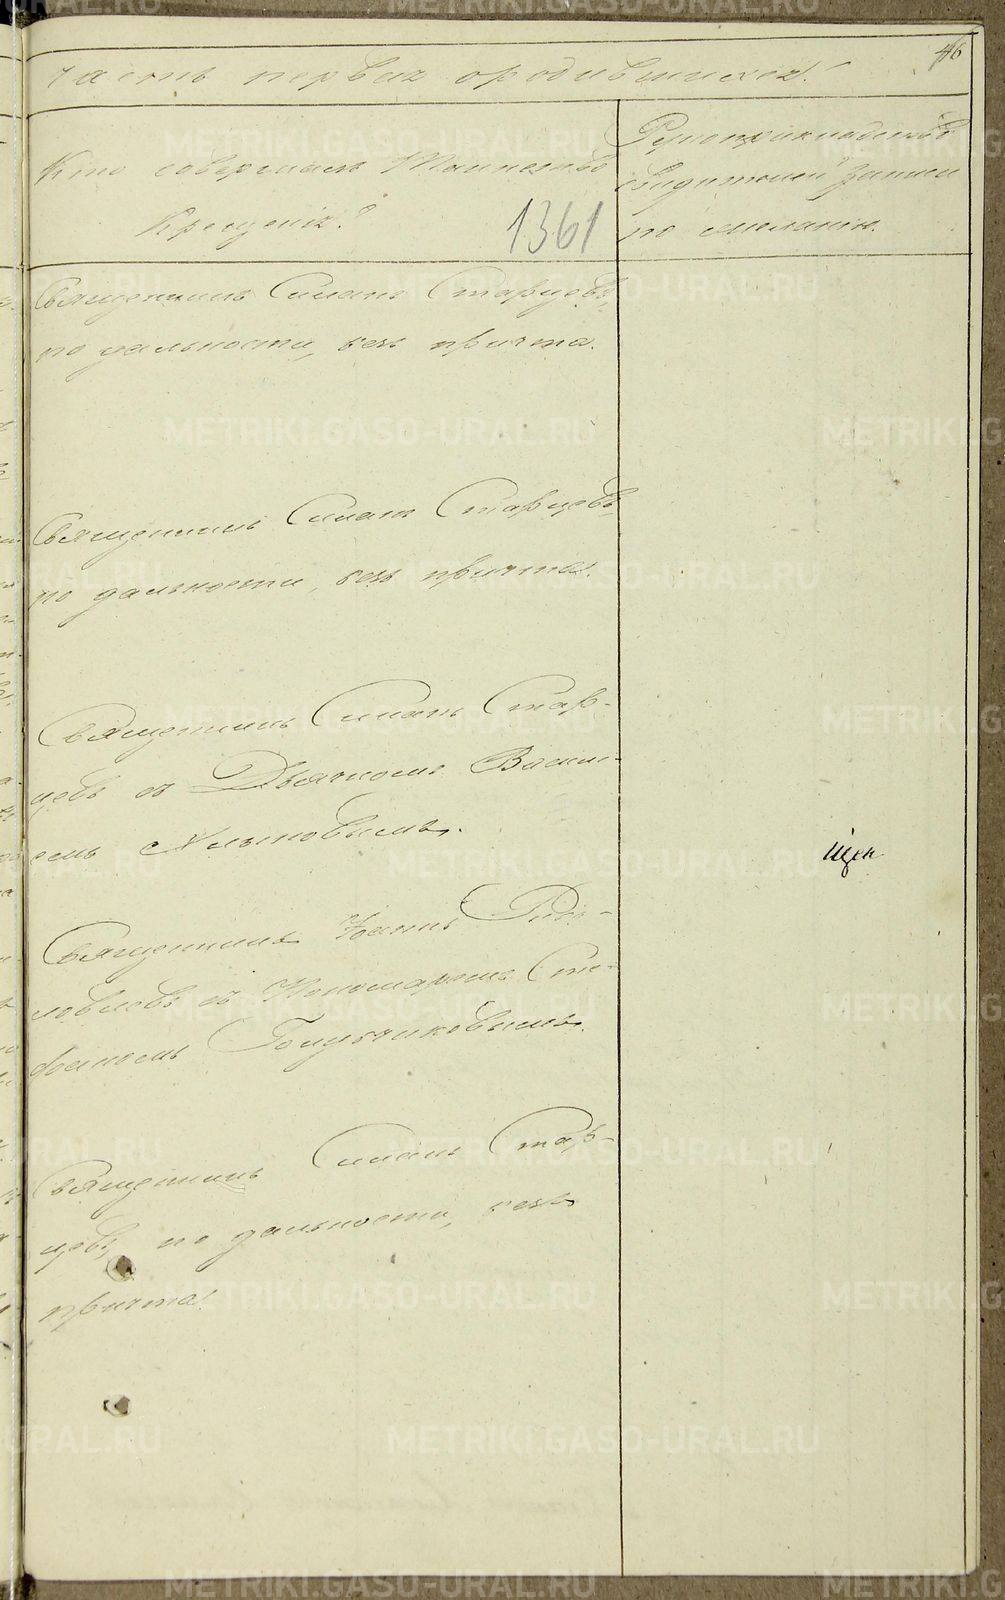 46
часть первая о родившихся.
Кто совершалъ Таинство
Крещенія?
1361
Рукоприкладство
свидѣтелей записи
по желанію.
Священникъ Симеонъ Старцевъ,
по дальности, безъ причта.
Священникъ Симеонъ Старцевъ,
по дальности, безъ причта.
Священникъ Симеонъ Стар-
цевъ съ Дьячкомъ Васил-
емъ Хлыновымъ.
Священникъ Іоаннъ
съ Пономаремъ Сте-
фаномъ Голубчиковымъ.
Священникъ Симеонъ Стар-
цевъ, по дальности, безъ
причта.
METRIKI.GASO-URAL.RU